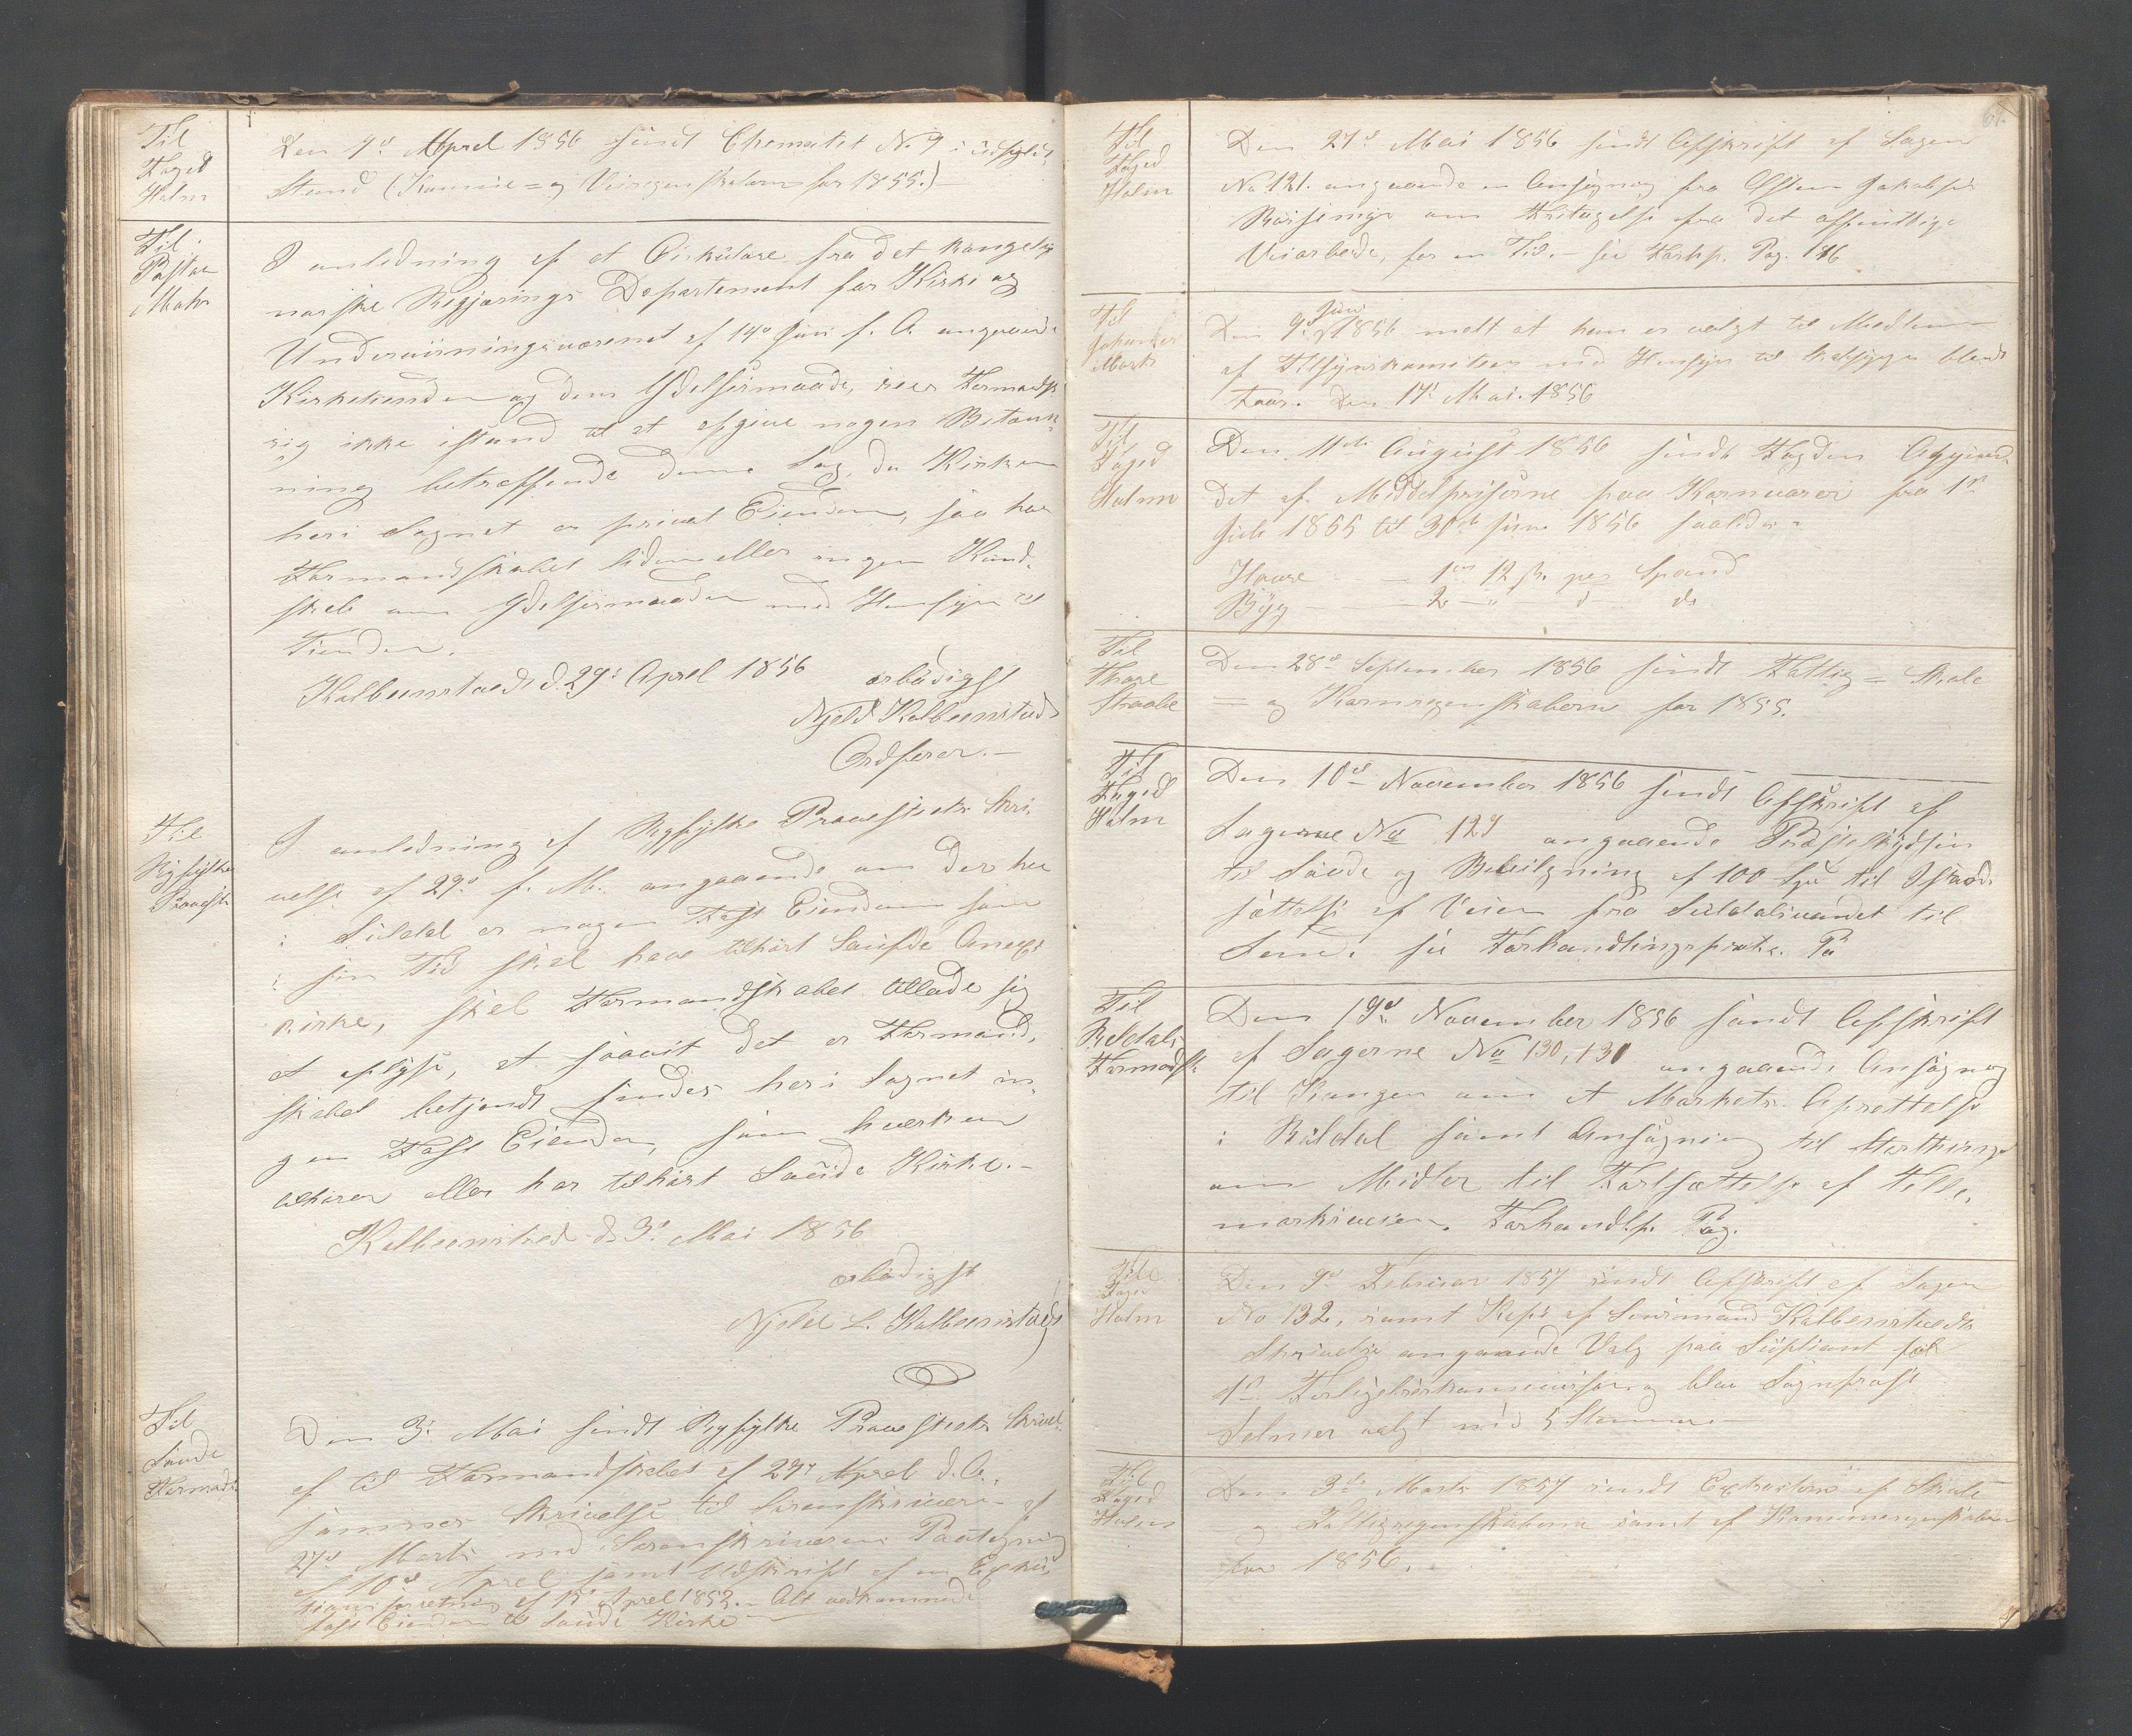 Til
Foged
Holm
Den 7d Aprel 1856 sendt Chematet No 9 i udfyldt
Stand (Kommune= og Veiregenskaberne for 1855.) —
Til
Pastor
Mohr
I anledning af et Cirkulare fra det kongelig
norske Regjerings Departement for Kirke og
Undervisningsvæsenet af 14de Juni f. A. angaaende
Kirketienden og dens Ydelsesmaade, seer Formandsk.
sig ikke istand til at afgive nogen Betænk-
ning betræffende denne Sag, da Kirken
her i Sognet er privat Eiendom, saa har
Formandskabet liden eller ingen Kund-
skab om Ydelsesmaaden med Hensyn til
Tienden.
Kolbeenstvedt d. 29de Aprel 1856
ærbødigst
Njeld Kolbeenstvedt
Ordfører. —
Til
Ryfylke
Provsti
I anledning af Ryfylke Provsties Skri-
velse af 29de f. M. angaaende om der her
i Suldal er nogen Fast Eiendom som
i sin Tid skal have tilhørt Saude Anex
kirke, skal Formandskabet tillade sig
at oplyse, at saavit det er Formand-
skabet betjendt findes her i Sognet in-
gen Fast Eiendom, som hverken
tilhører eller har tilhørt Saude Kirke. —
Kolbeenstvedt d. 3d Mai 1856
ærbødigst
Njeld L. Kolbeenstvedt
Til
Saude
Formandsk
Den 3d Mai sendt Ryfylke Provsties Skrivel-
se til Formandskabet af 29de Aprel d. A.
sammes Skrivelse til Sorenskriveren af
27d Marts med Sorenskriverens Paategning
af 10d Aprel samt Udskrift af en Exeku
tionsforretning af 15 Aprel 1852. — Alt vedkommende
fast Eiendom til Saude Kirke —
61.
Til
Foged
Holm
Den 27d Mai 1856 sendt Afskrift af Sagen
No 121. angaaende en Ansøgning fra Østen Jakobsen
om Fritagelse fra det offentlige
Veiarbeide, for en Tid. — see Forhp. Pag. 146
Til
Johannes
Mork
Juni
Den 9d 1856 meldt at han er valgt til Medlem
af Tilsynskomiteen med Hensyn til Kabsygen blandt
Faar. Den 17d Mai. 1856
Til
Foged
Holm
Den 11te August 1856 sendt Fogden Opgjæv
det af Middelpriserne paa Kornvarer fra 1d
Juli 1855 til 30te Juni 1856 saaledes:
Havre — 1 12 sk. per Spand
Byg — 2 — " d do
Til
Thore
Straabe
Den 28d September 1856 sendt Fattig= Skole
= og Kornregenskaberne for 1855.
Til
Foged
Holm
Den 10d November 1856 sendt Afskrift af
Sagerne No 129 angaaende Præsteskydsen
til Saude og Bevilgning af 100 Spd til Istand-
sættelse af Veien fra Suldalsvandet til
Sand. see Forhandlingsprotk. Pa
Til
Røldals
Formandsk.
Den 19d November 1856 sendt Afskrift
af Sagerne No 130, 131 angaaende Ansøgning
til Kongen om et Markets Oprettelse
i Røldal samt Ansøgning til Storthinget
om Midler til Fortsættelse af Telle-
marksveien. Forhandlp. Pag.
Til
Foged
Holm
Den 9d Februar 1857 sendt Afskrift af Sagen
No 132, samt Kopi af Lensmand Kolbeenstvedts
Skrivelse angaaende Valg paa Supliant for
1d Forligelseskommission og blev Sognprest
Selmer valgt med 5 Stemmer.
Til
Foged
Holm
Den 3d Marts 1857 sendt Extrakten af Skole
og Fattigregenskaberne samt af Kommuneregenskaberne
for 1856.